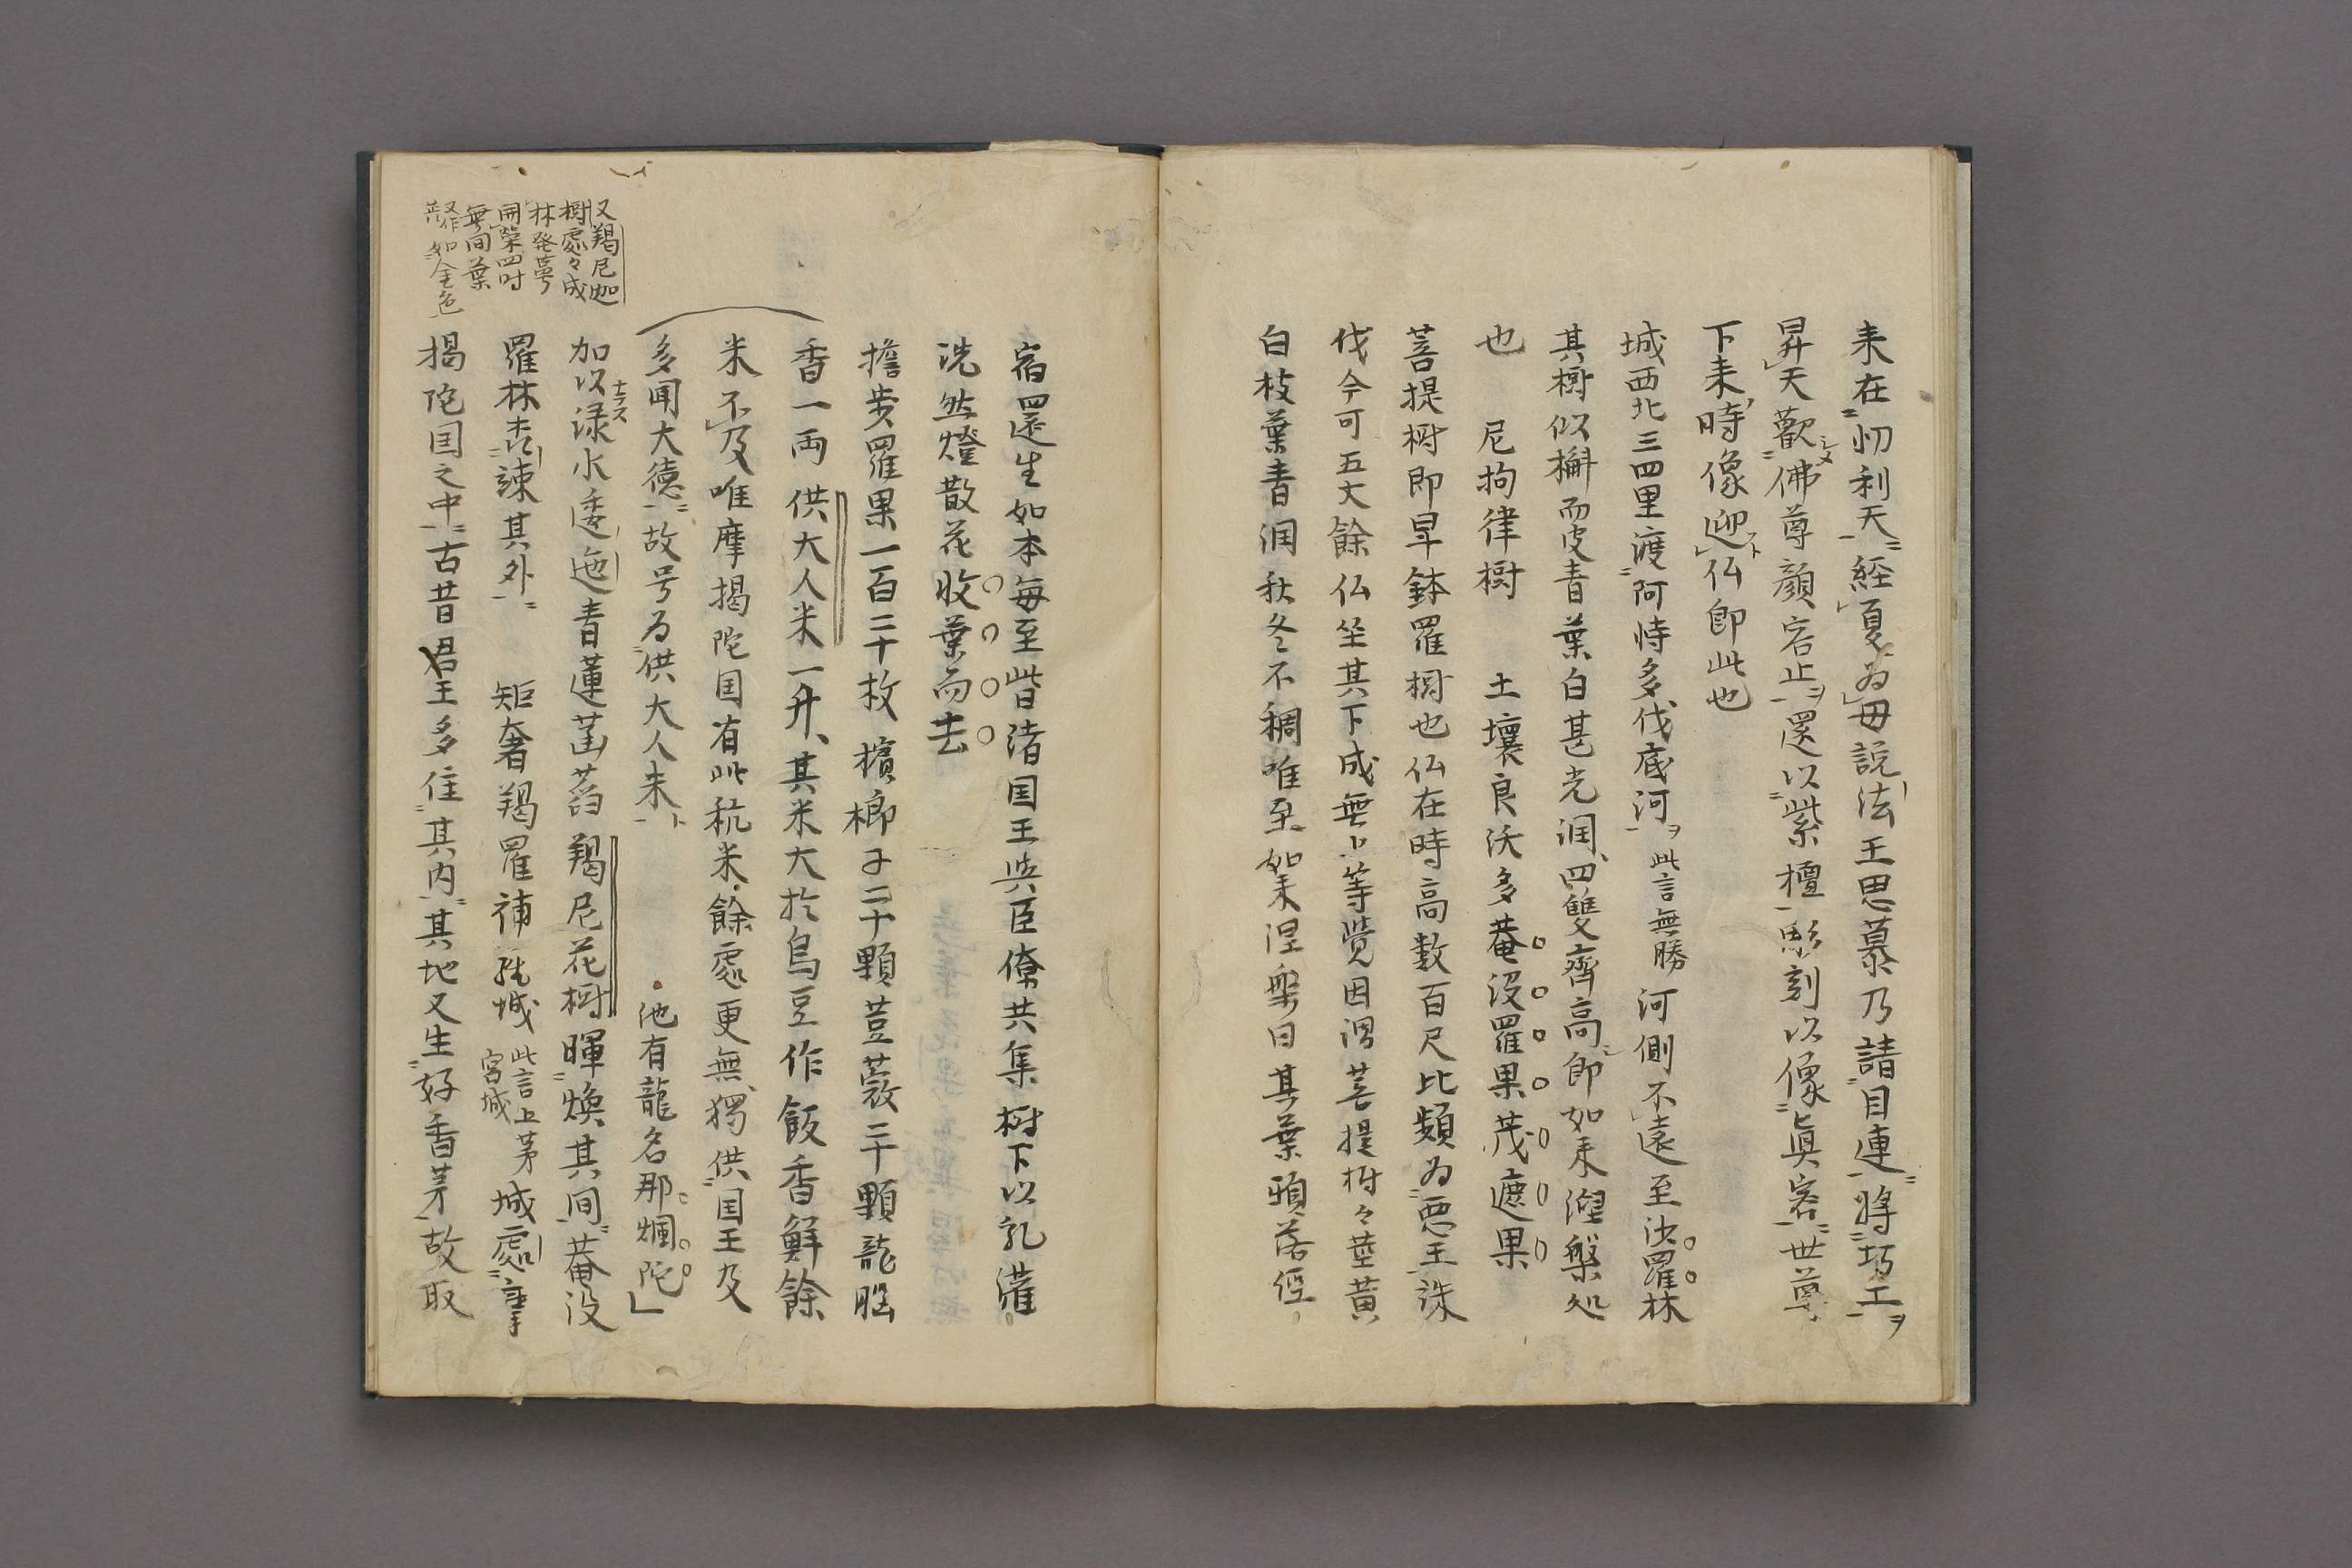 来在忉利天経夏為母説法王思慕乃請目連将巧工ヲ
昇天歡シメ佛尊顔容止ヲ還以紫檀彫刻以像真容世尊
下来時像迎ヘト仏即此也
城西北三四里渡阿恃多伐底河ヲ此言無勝河側不遠至沙羅林
其樹似槲而皮青葉白甚光潤四雙齊高即如来涅槃処
也　尼拘律樹　土壤良沃多菴没羅果茂遮果
菩提樹即畢鉢羅樹也仏在時高数百尺比頻為悪王誅
伐今可五丈餘仏坐其下成無上等覚因謂菩提樹々茎黄
白枝葉青潤秋冬不稠唯至如来涅槃日其葉頓落経
宿還生如本毎至皆諸国王与臣僚共集樹下以乳灌
洗然燈散花收葉而去
擔歩羅果一百二十枚檳榔子二十顆荳蔲二十顆龍脳
香一両供大人米一升其米大於烏豆作飯香鮮餘
米不及唯摩揭陀国有此秔米餘處更無獨供国王及
多聞大徳故号為供大人米ト　池有龍名那爛陀
加以渌ナラス水逶迤青蓮菡萏羯尼花樹暉煥其間菴没
羅林森竦其外　矩奢羯羅補羅城此言上茅宮城城處摩
揭陀国之中古昔君王多住其内其地又生好香茅故取
又羯尼迦
樹處々成
林発萼
開榮四时
無間葉
如金色